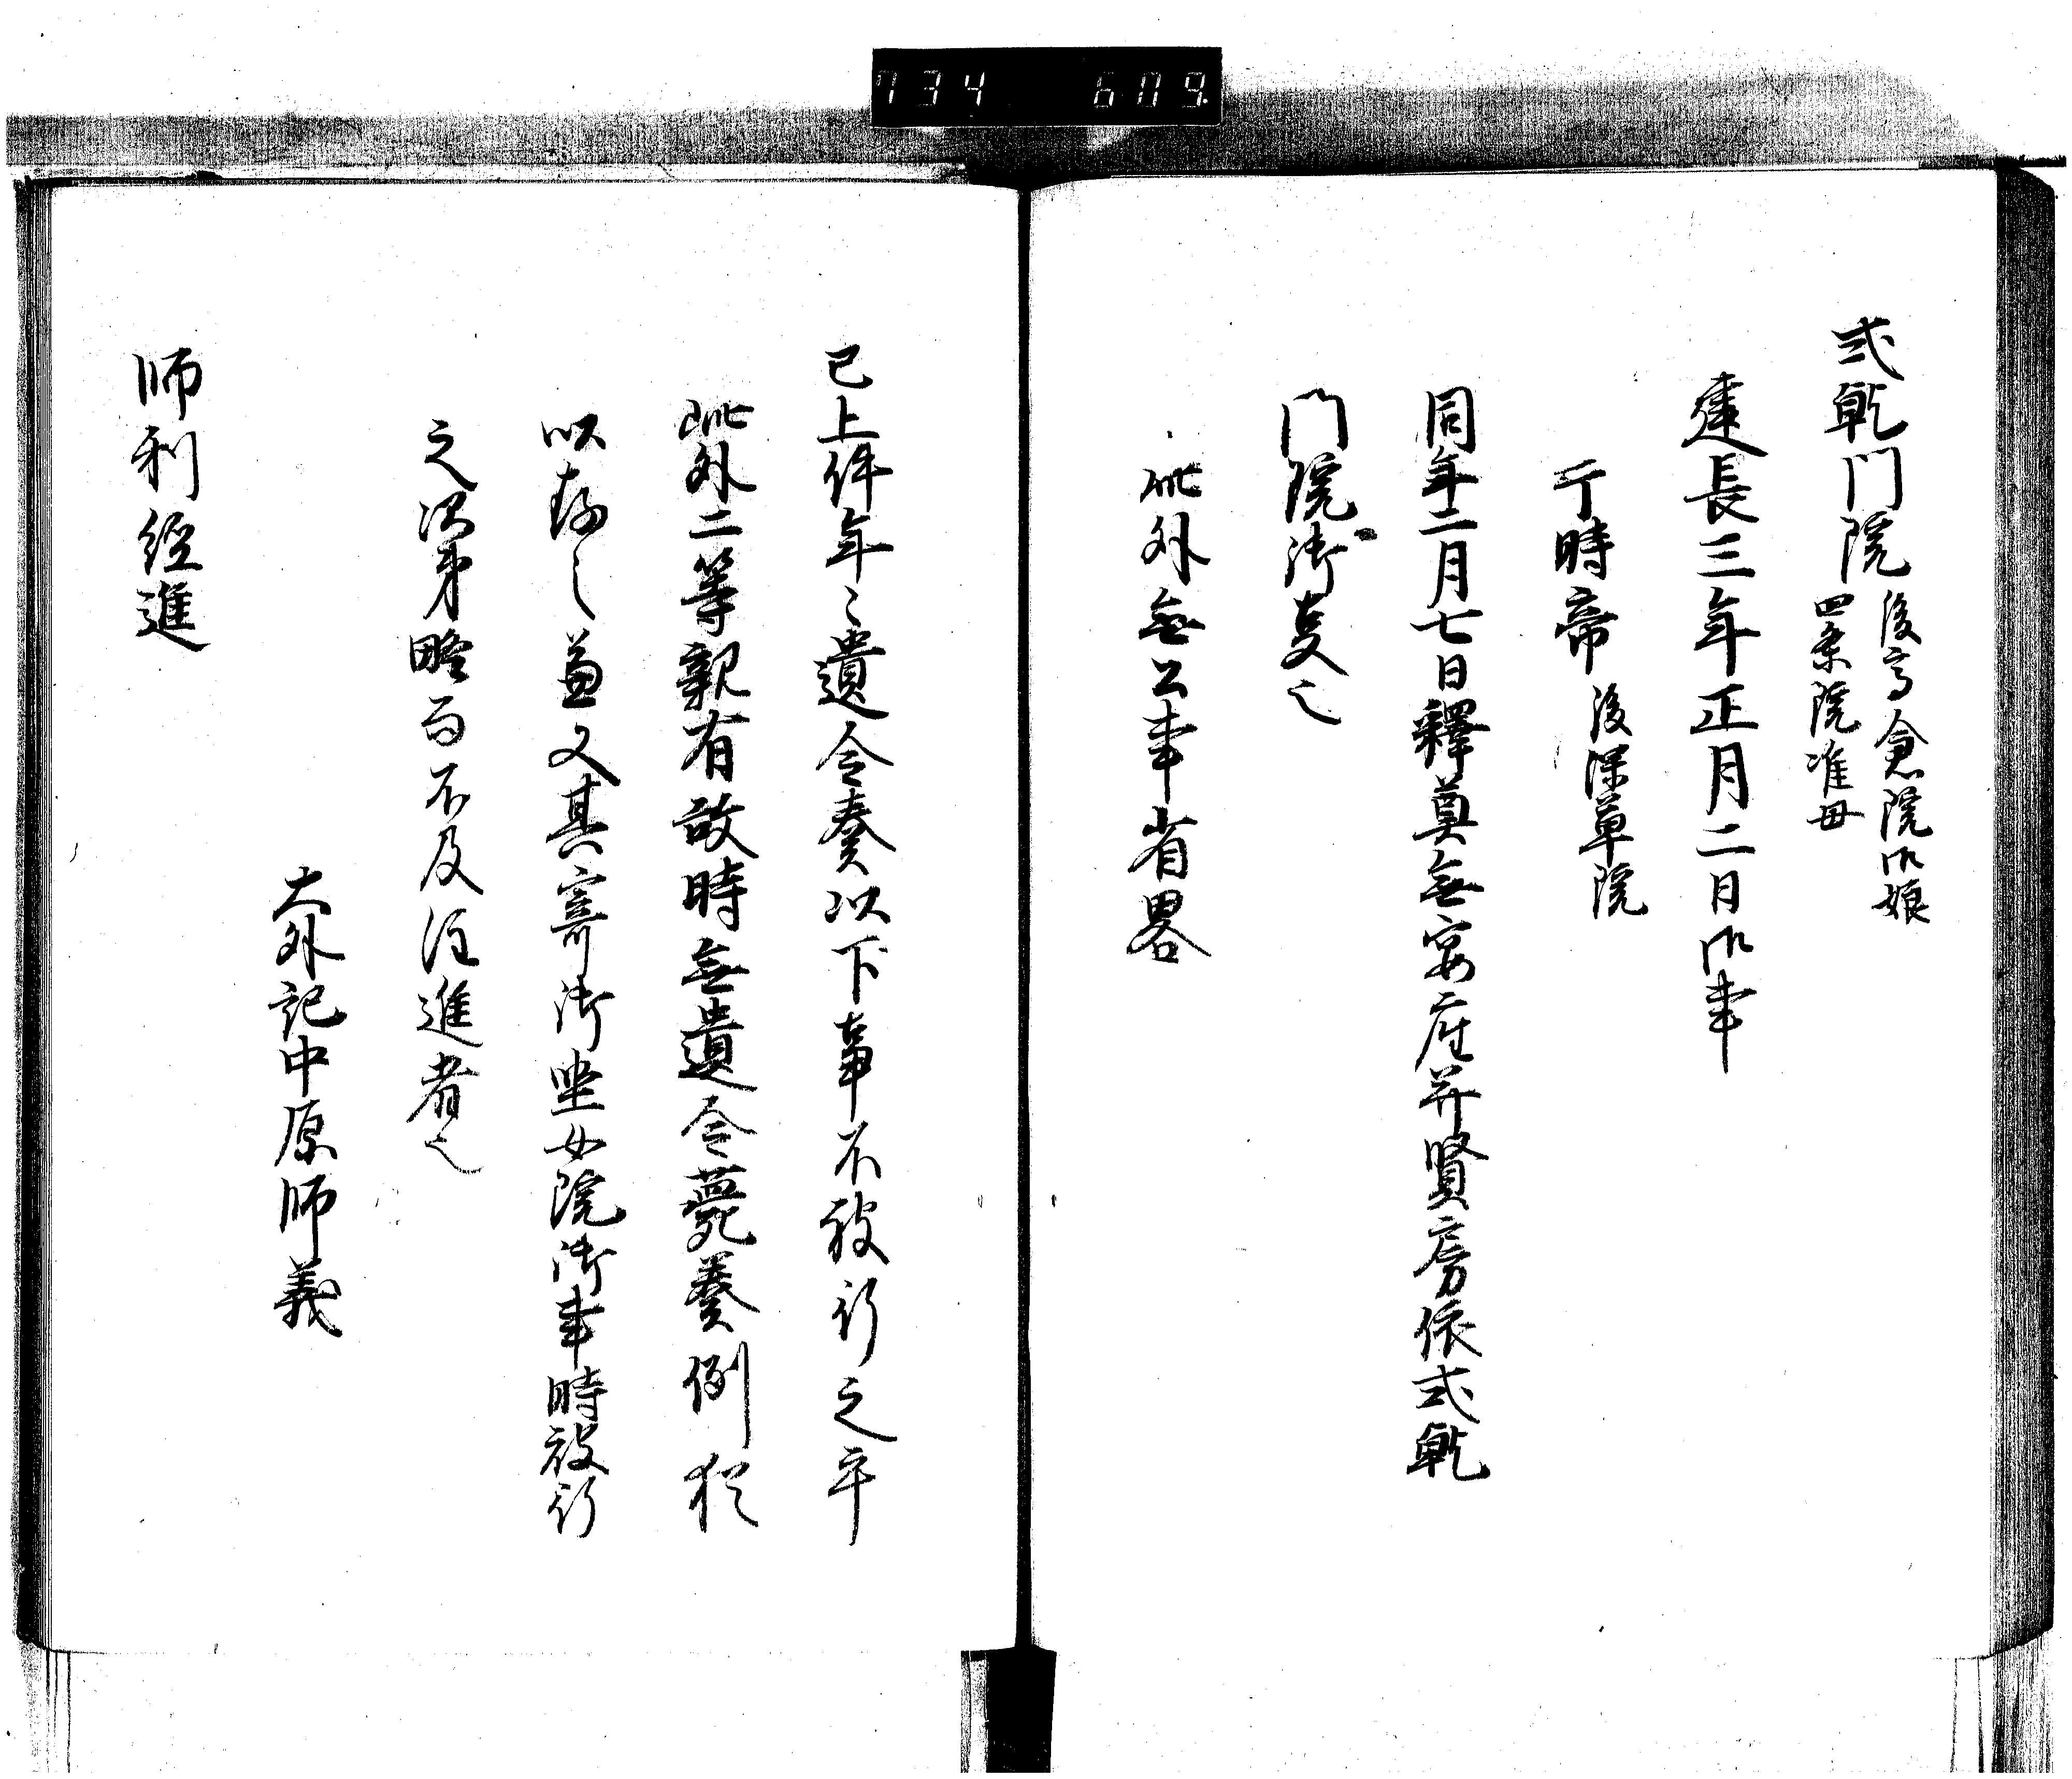 734 609.
式乾門院 後高倉院御娘
四条院准母
建長三年正月二日御事
于時帝 後深草院
同年二月七日釋奠無宴座并賢房依式乾
門院御事也
此外無公事省略
已上件年々遺令奏以下事不被行之乎
此外二等親有故時無遺令薨奏例
以存之兼又其寄御坐女院御事時被行
之次第略而不及注進者也
大外記中原師義
師利經進